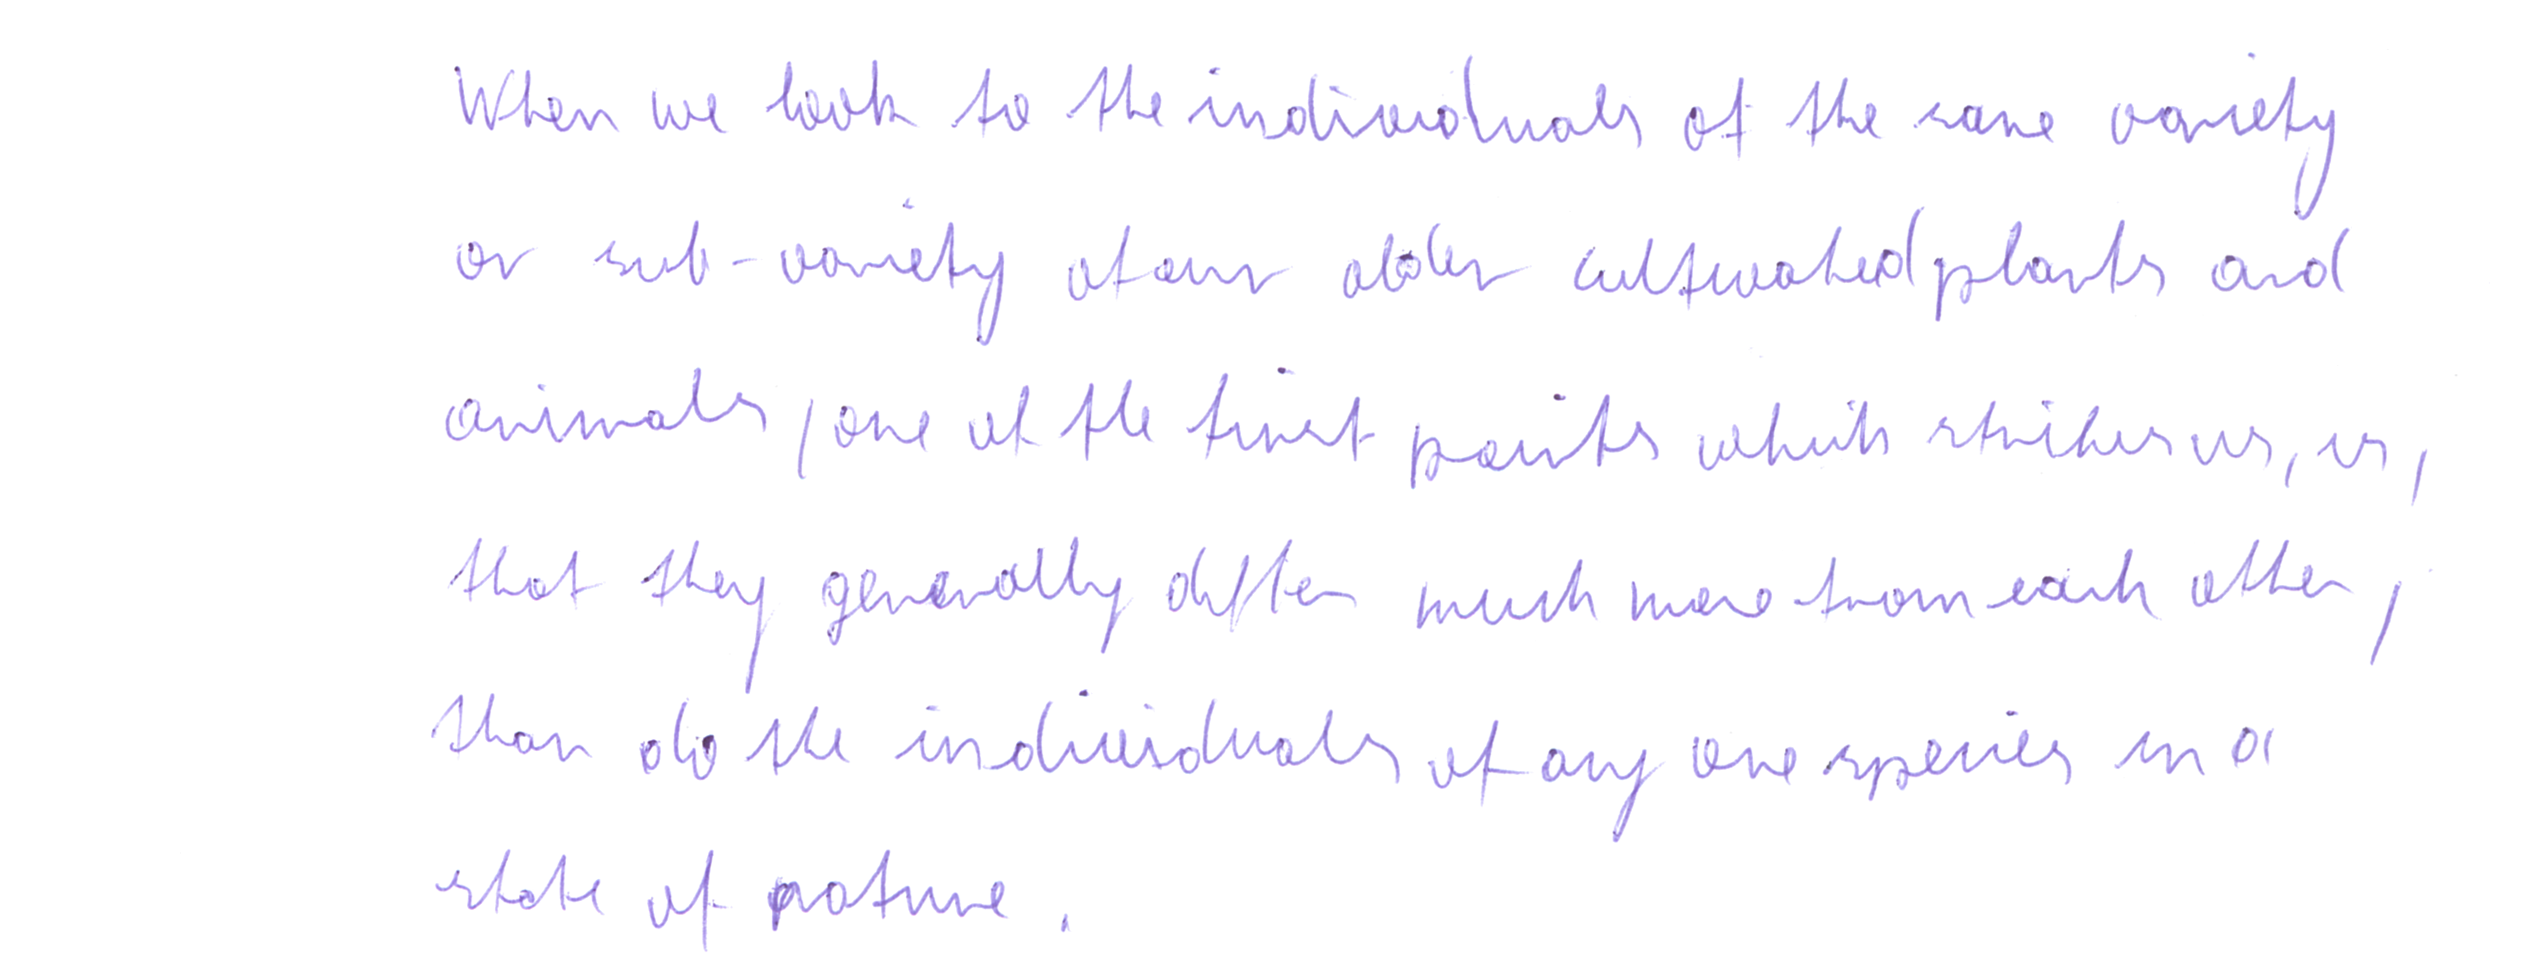 When we look to the individuals of the same variety
or sub-variety of our older cultivated plants and
animals, one of the first points which strikes us, is,
that they generally differ much more from each other,
than do the individuals of any one species in a
state of nature.